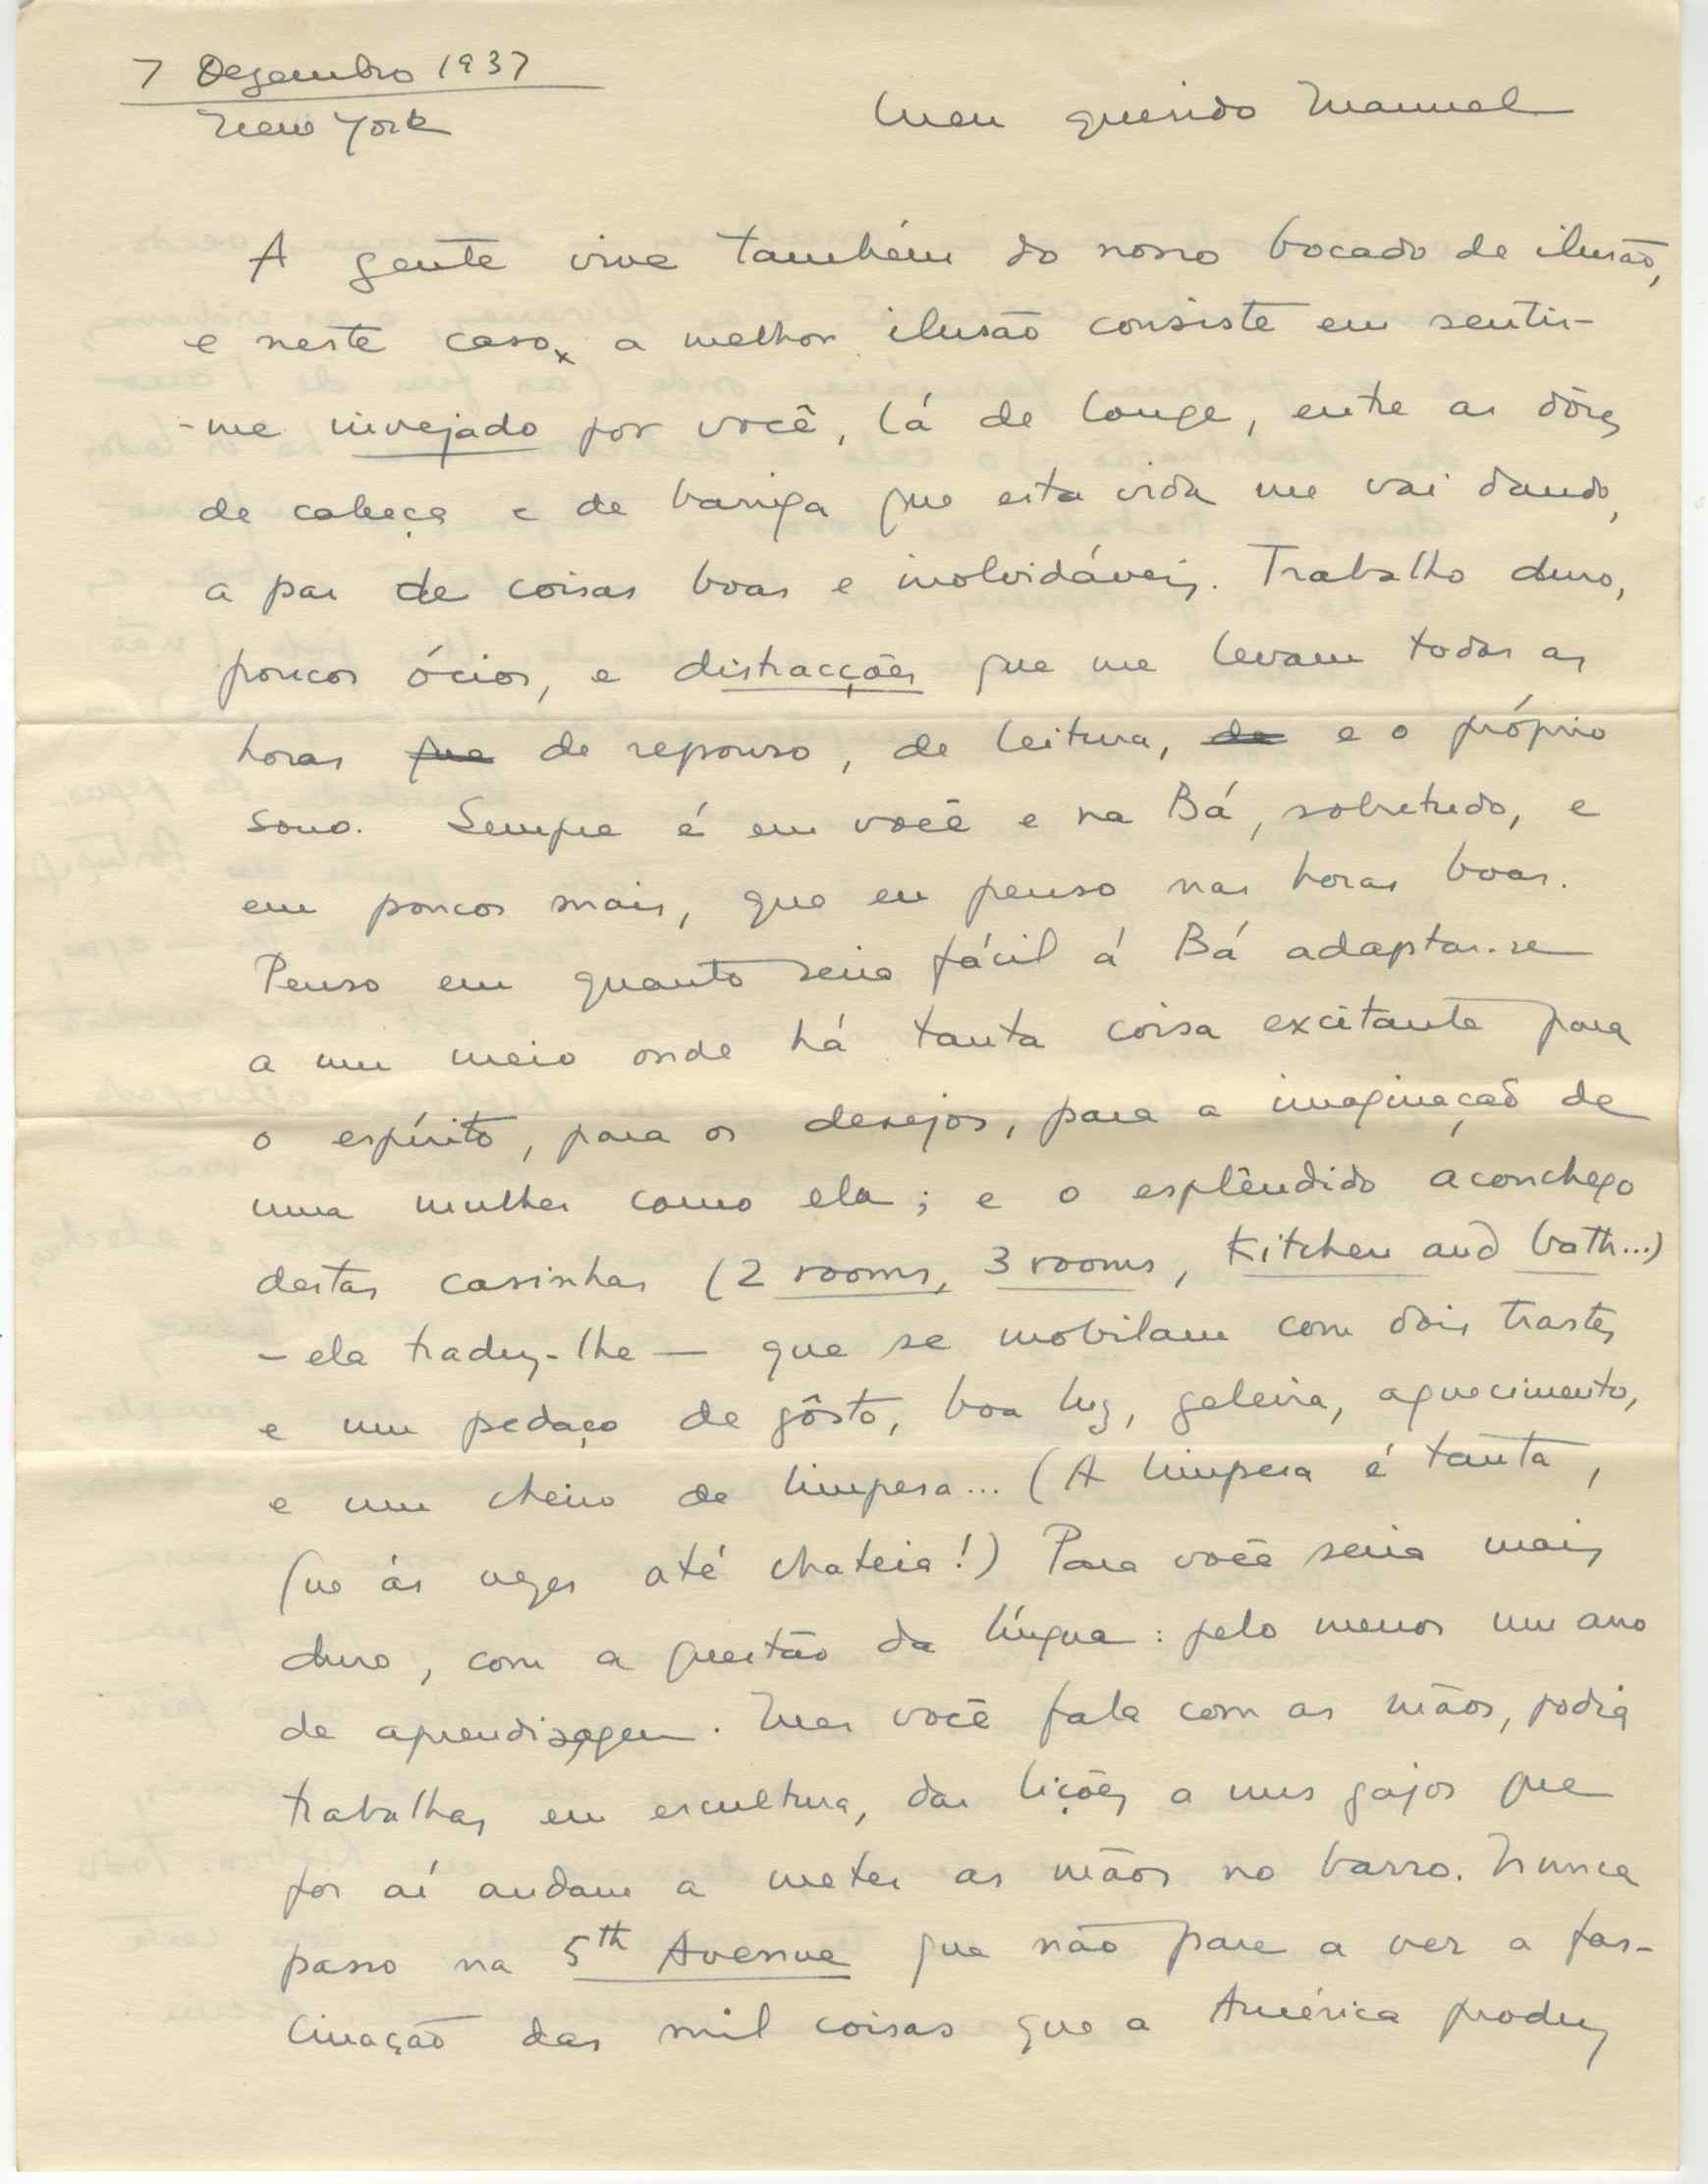 7 Dezembro 1937
New York
Meu querido Manuel
A gente vive também do nosso bocado de ilusão,
e neste caso, a melhor ilusão consiste em sentir-
-me invejado por você, lá de longe, entre as dôres
de cabeça e de barriga que esta vida me vai dando,
a par de coisas boas e inolvidáveis. Trabalho duro,
poucos ócios, e distracções que me levam todas as
horas que de repouso, de leitura, de e o próprio
sono. Sempre é em você e na Bá, sobretudo, e
em poucos mais, que eu penso nas horas boas.
Penso em quanto seria fácil á Bá adaptar-se
a um meio onde há tanta coisa excitante para
o espírito, para os desejos, para a imaginação de
uma mulher como ela; e o esplêndido aconchego
destas casinhas (2 rooms, 3 rooms, Kitchen and bath...)
- ela traduz-lhe - que se mobilam com dois trastes
e um pedaço de gôsto, boa luz, geleira, aquecimento,
e um cheiro de limpesa... (A limpesa é tanta,
que ás vezes até chateia!) Para você seria mais
duro, com a questão da língua: pelo menos um ano
de aprendisagem. Mas você fala com as mãos, podia
trabalhar em escultura, dar lições a uns gajos que
por aí andam a meter as mãos no barro. Nunca
passo na 5th Avenue que não pare a ver a fas-
cinação das mil coisas que a América produz